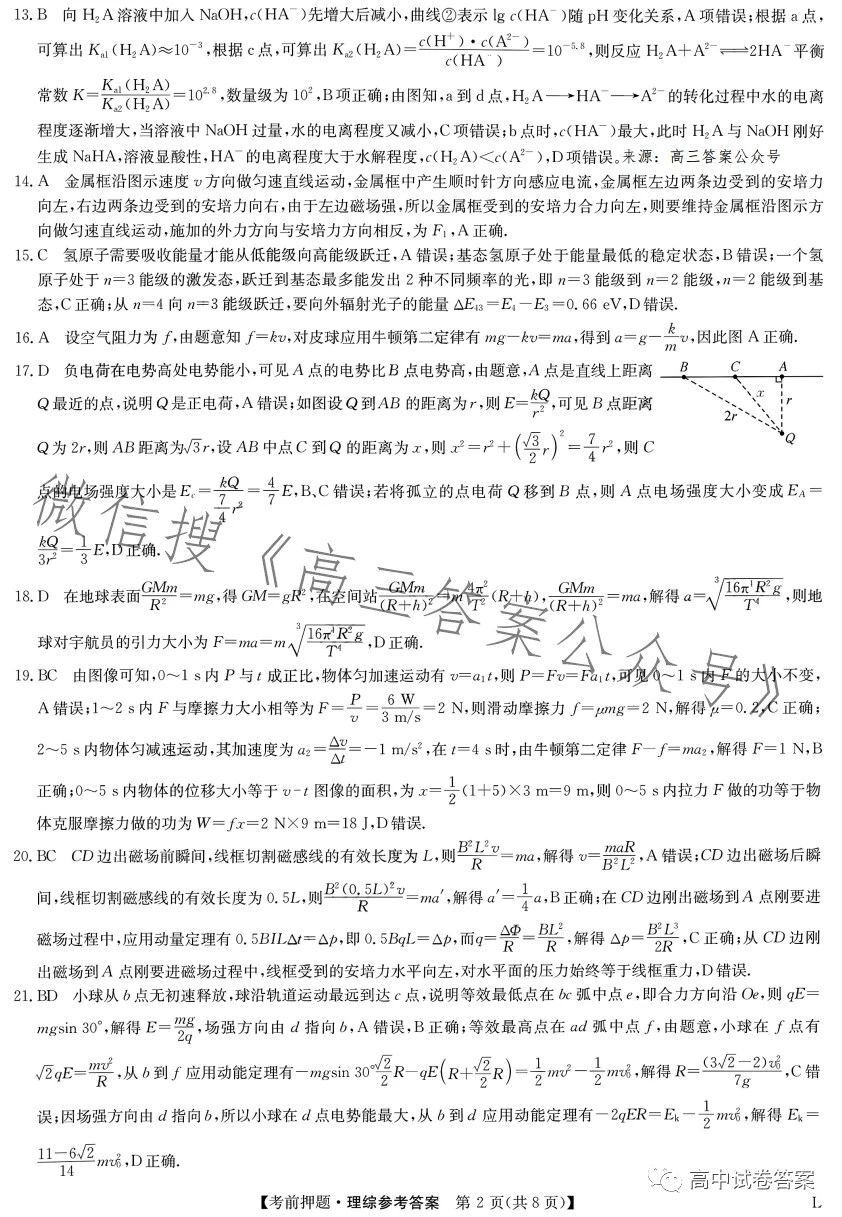 13. B　向 H₂A 溶液中加入 NaOH,c(HA⁻)先增大后减小,曲线②表示 lg c(HA⁻)随 pH 变化关系,A 项错误;根据 a 点,
可算出 Ka1(H₂A)≈10⁻³,根据 c 点,可算出 Ka2(H₂A)=c(H⁺)·c(A²⁻)/c(HA⁻)=10⁻⁵·⁸,则反应 H₂A+A²⁻⇌2HA⁻平衡
常数 K=Ka1(H₂A)/Ka2(H₂A)=10²·⁸,数量级为 10²,B 项正确;由图知,a 到 d 点,H₂A⟶HA⁻⟶A²⁻的转化过程中水的电离
程度逐渐增大,当溶液中 NaOH 过量,水的电离程度又减小,C 项错误;b 点时,c(HA⁻)最大,此时 H₂A 与 NaOH 刚好
生成 NaHA,溶液显酸性,HA⁻的电离程度大于水解程度,c(H₂A)<c(A²⁻),D 项错误。来源:高三答案公众号
14. A　金属框沿图示速度 v 方向做匀速直线运动,金属框中产生顺时针方向感应电流,金属框左边两条边受到的安培力
向左,右边两条边受到的安培力向右,由于左边磁场强,所以金属框受到的安培力合力向左,则要维持金属框沿图示方
向做匀速直线运动,施加的外力方向与安培力方向相反,为 F₁,A 正确.
15. C　氢原子需要吸收能量才能从低能级向高能级跃迁,A 错误;基态氢原子处于能量最低的稳定状态,B 错误;一个氢
原子处于 n=3 能级的激发态,跃迁到基态最多能发出 2 种不同频率的光,即 n=3 能级到 n=2 能级,n=2 能级到基
态,C 正确;从 n=4 向 n=3 能级跃迁,要向外辐射光子的能量 △E₄₃=E₄-E₃=0.66 eV,D 错误.
16. A　设空气阻力为 f,由题意知 f=kv,对皮球应用牛顿第二定律有 mg-kv=ma,得到 a=g-k/m v,因此图 A 正确.
17. D　负电荷在电势高处电势能小,可见 A 点的电势比 B 点电势高,由题意,A 点是直线上距离
Q 最近的点,说明 Q 是正电荷,A 错误;如图设 Q 到 AB 的距离为 r,则 E=kQ/r²,可见 B 点距离
Q 为 2r,则 AB 距离为√3r,设 AB 中点 C 到 Q 的距离为 x,则 x²=r²+(√3/2 r)²=7/4 r²,则 C
点的电场强度大小是 Ec=kQ/(7/4 r²)=4/7 E,B、C 错误;若将孤立的点电荷 Q 移到 B 点,则 A 点电场强度大小变成 EA=
kQ/3r²=1/3 E,D 正确.
B C A
x r
2r
Q
18. D　在地球表面 GMm/R²=mg,得 GM=gR²,在空间站 GMm/(R+h)²=m 4π²/T²(R+h),GMm/(R+h)²=ma,解得 a=∛(16π⁴R²g/T⁴),则地
球对宇航员的引力大小为 F=ma=m∛(16π⁴R²g/T⁴),D 正确.
19. BC　由图像可知,0~1 s 内 P 与 t 成正比,物体匀加速运动有 v=a₁t,则 P=Fv=Fa₁t,可见 0~1 s 内 F 的大小不变,
A 错误;1~2 s 内 F 与摩擦力大小相等为 F=P/v=6 W/3 m/s=2 N,则滑动摩擦力 f=μmg=2 N,解得 μ=0.2,C 正确;
2~5 s 内物体匀减速运动,其加速度为 a₂=△v/△t=-1 m/s²,在 t=4 s 时,由牛顿第二定律 F-f=ma₂,解得 F=1 N,B
正确;0~5 s 内物体的位移大小等于 v-t 图像的面积,为 x=1/2(1+5)×3 m=9 m,则 0~5 s 内拉力 F 做的功等于物
体克服摩擦力做的功为 W=fx=2 N×9 m=18 J,D 错误.
20. BC　CD 边出磁场前瞬间,线框切割磁感线的有效长度为 L,则 B²L²v/R=ma,解得 v=maR/B²L²,A 错误;CD 边出磁场后瞬
间,线框切割磁感线的有效长度为 0.5L,则 B²(0.5L)²v/R=ma′,解得 a′=1/4 a,B 正确;在 CD 边刚出磁场到 A 点刚要进
磁场过程中,应用动量定理有 0.5BIL△t=△p,即 0.5BqL=△p,而 q=△Φ/R=BL²/R,解得 △p=B²L³/2R,C 正确;从 CD 边刚
出磁场到 A 点刚要进磁场过程中,线框受到的安培力水平向左,对水平面的压力始终等于线框重力,D 错误.
21. BD　小球从 b 点无初速释放,球沿轨道运动最远到达 c 点,说明等效最低点在 bc 弧中点 e,即合力方向沿 Oe,则 qE=
mgsin 30°,解得 E=mg/2q,场强方向由 d 指向 b,A 错误,B 正确;等效最高点在 ad 弧中点 f,由题意,小球在 f 点有
√2qE=mv²/R,从 b 到 f 应用动能定理有-mgsin 30°√2/2 R-qE(R+√2/2 R)=1/2 mv²-1/2 mv₀²,解得 R=(3√2-2)v₀²/7g,C 错
误;因场强方向由 d 指向 b,所以小球在 d 点电势能最大,从 b 到 d 应用动能定理有-2qER=Ek-1/2 mv₀²,解得 Ek=
(11-6√2)/14 mv₀²,D 正确.
微信搜《高三答案公众号》
高中试卷答案
【考前押题·理综参考答案　第 2 页(共 8 页)】
L